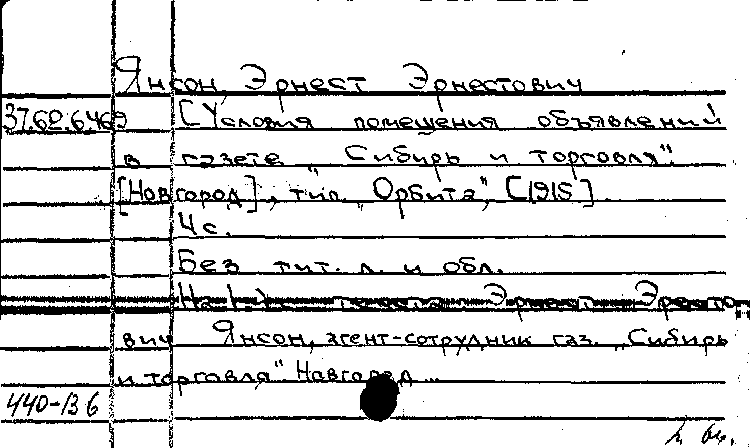 Янсон, Эрнест Эрнестович
37.60.6.469 [Условия помещения объявлений
в газете „Сибирь и торговля".
[Новгород], тип. „Орбита", [1915].
4 с.
Без тит. л. и обл.
На 1 текста: Эрнест Эресто-
вич Янсон, агент-сотрудник газ. „Сибирь
и торговля" Новгород ...
440-136